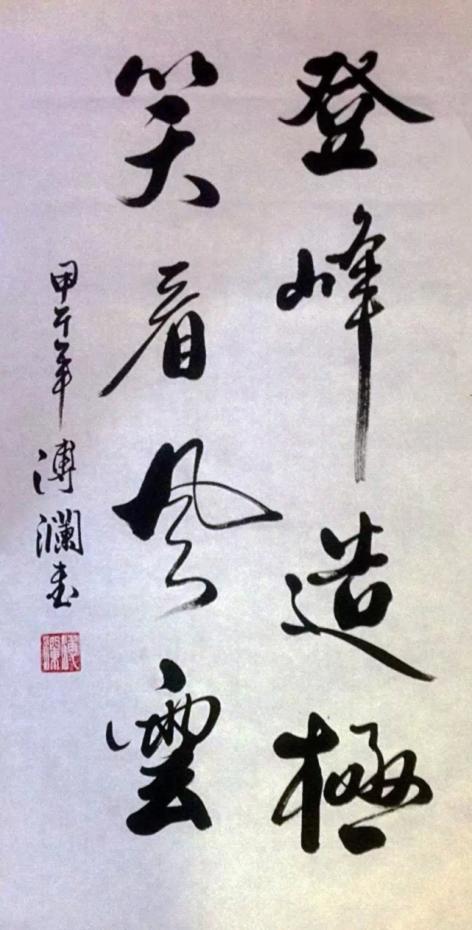 登峰造極
笑看風雲
甲午年溥瀾書
溥瀾